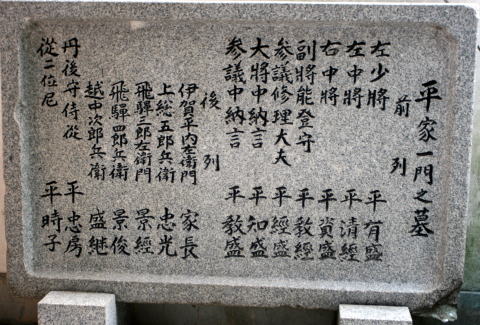 平家一門之墓
前列
左少將 平有盛
左中將 平清經
右中將 平資盛
副將能登守 平教經
參議修理大夫 平經盛
大將中納言 平知盛
參議中納言 平教盛
後列
伊賀平内左衛門 家長
上総五郎兵衛 忠光
飛騨三郎左衛門 景經
飛騨四郎兵衛 景俊
越中次郎兵衛 盛継
丹後守侍從 平忠房
從二位尼 平時子